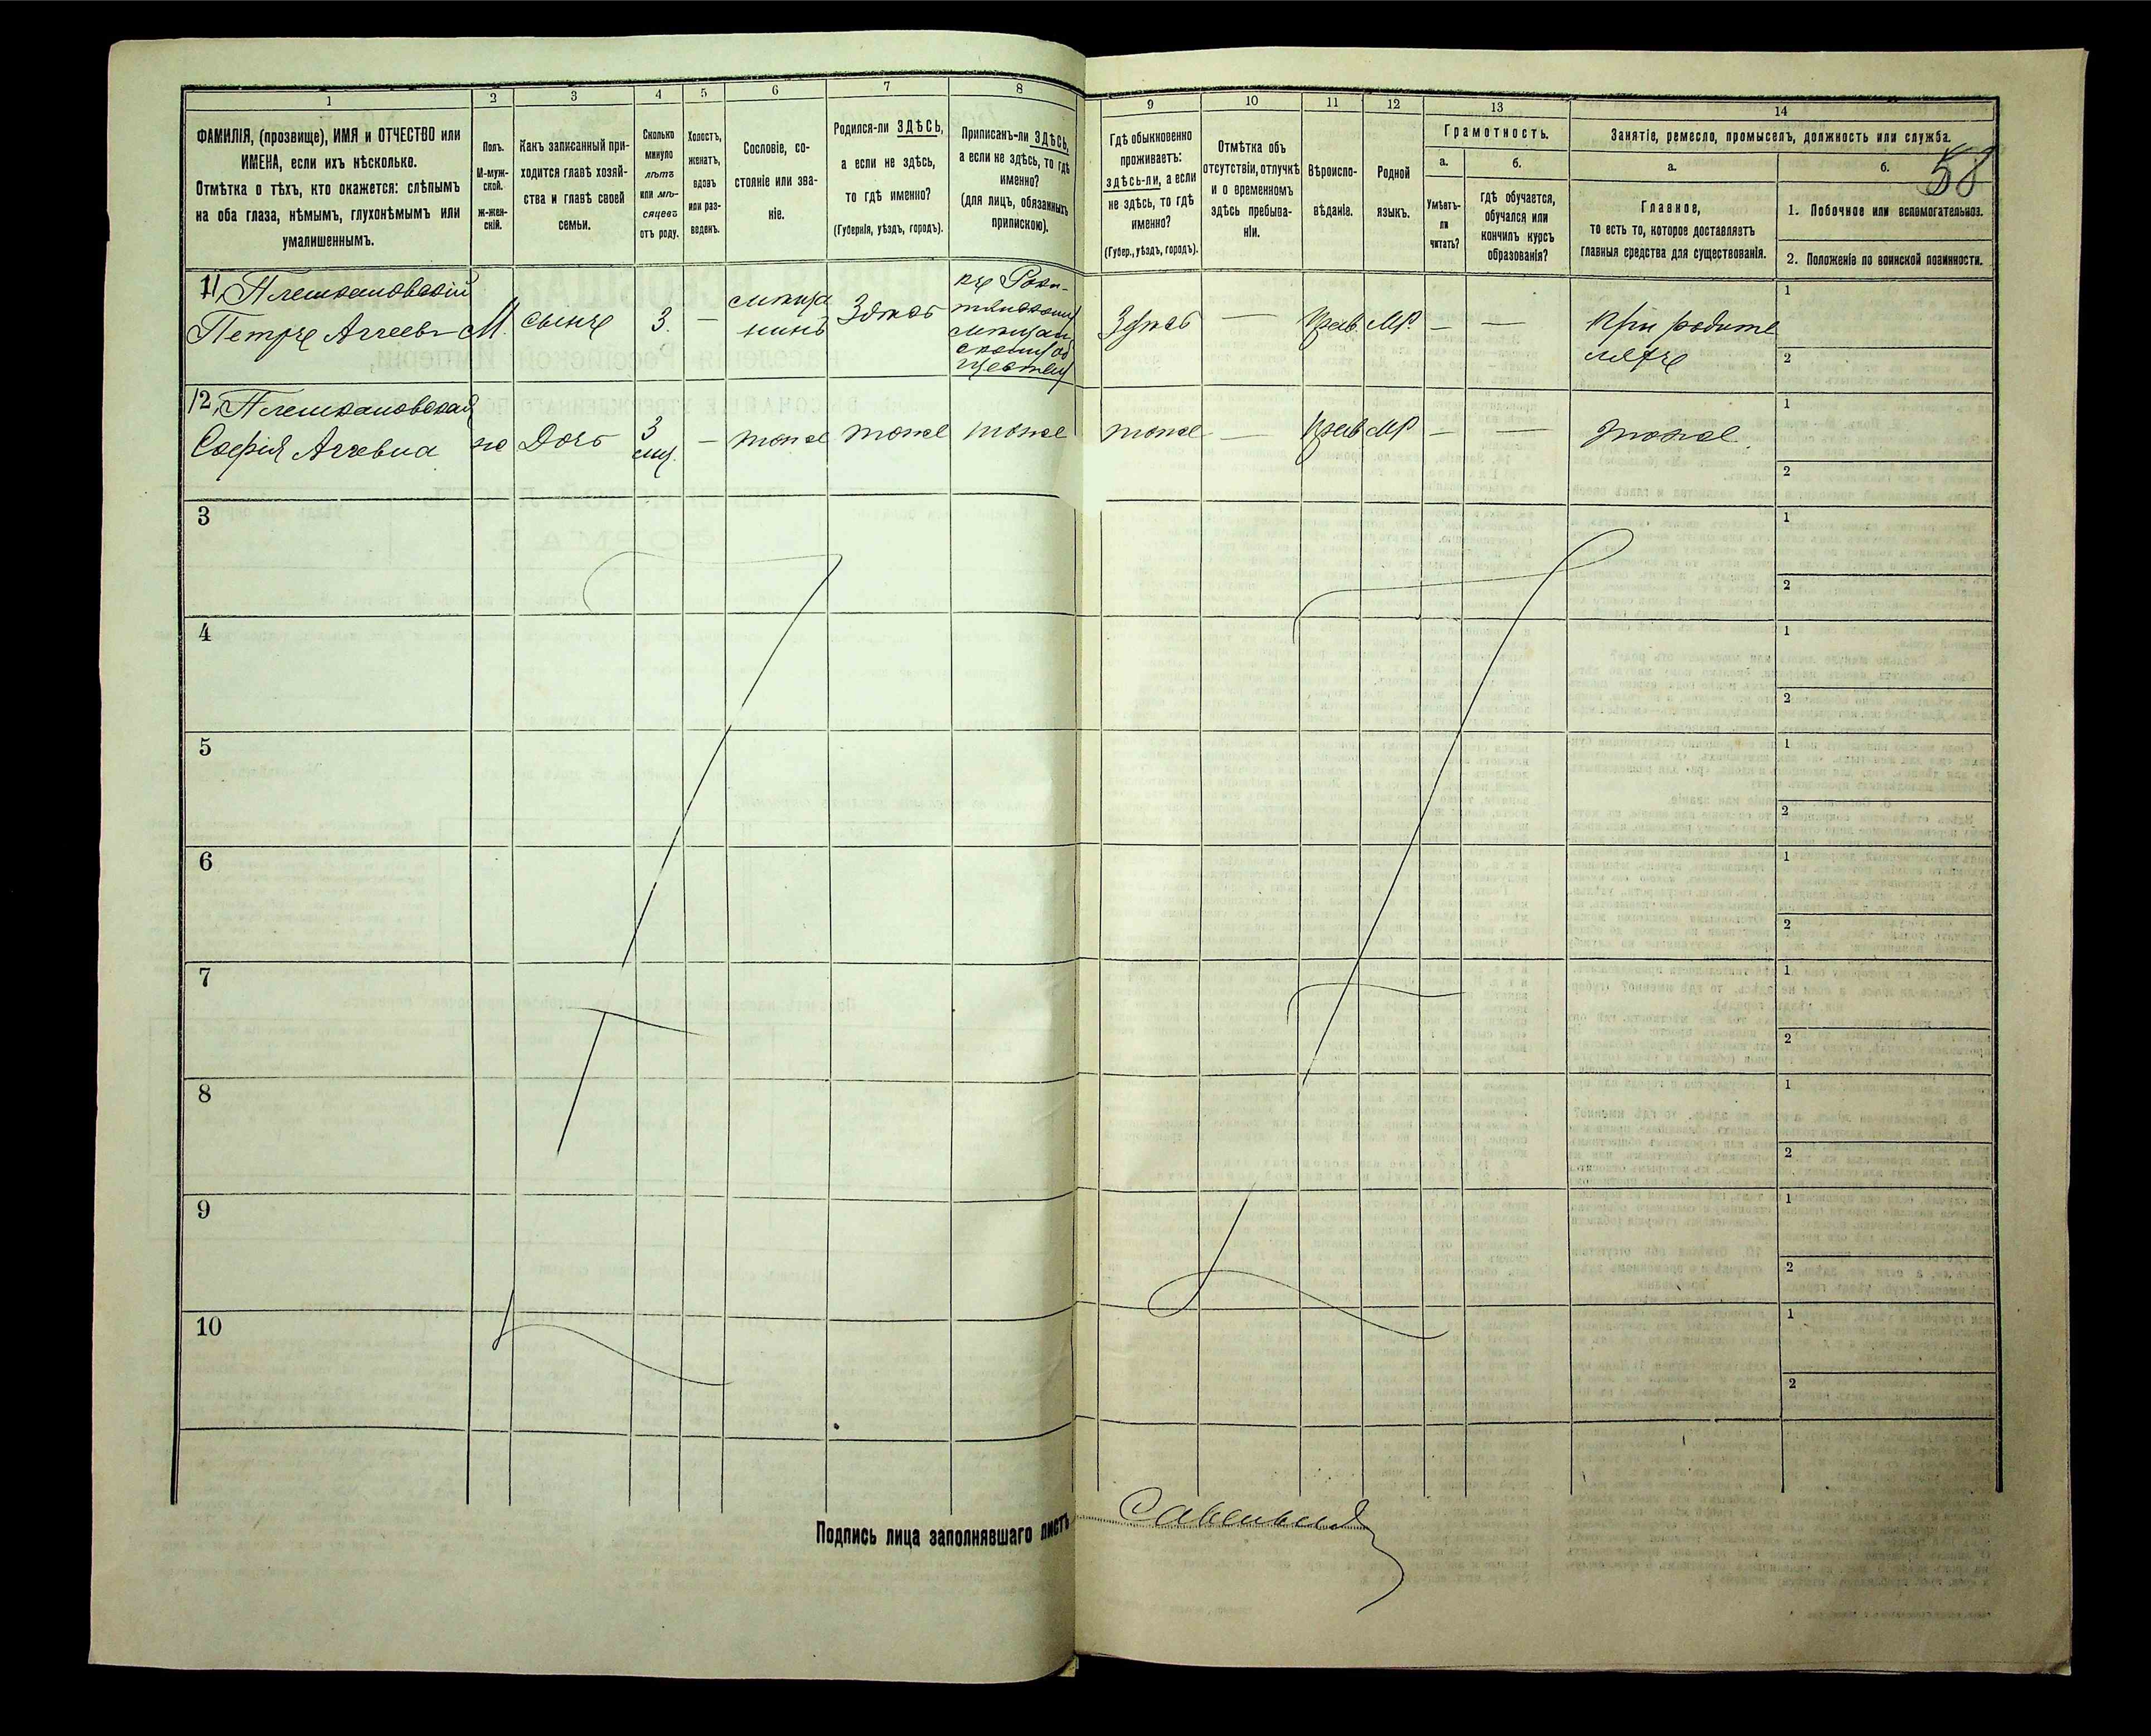 1
2
3
4
5
6
7
8
ФАМИЛІЯ, (прозвище), ИМЯ и ОТЧЕСТВО или
ИМЕНА, если ихъ нѣсколько.
Отмѣтка о тѣхъ, кто окажется: слѣпымъ
на оба глаза, нѣмымъ, глухонѣмымъ или
умалишеннымъ.
Полъ.
М-муж-
ской.
ж-жен-
скій.
Какъ записанный при-
ходится главѣ хозяй-
ства и главѣ своей
семьи.
Сколько
минуло
лѣтъ
или мѣ-
сяцевъ
отъ роду.
Холостъ,
женатъ,
вдовъ
или раз-
веденъ.
Сословіе, со-
стояніе или зва-
ніе.
Родился-ли ЗДѢСЬ,
а если не здѣсь,
то гдѣ именно?
(Губернія, уѣздъ, городъ).
Приписанъ-ли ЗДѢСЬ,
а если не здѣсь, то гдѣ
именно?
(для лицъ, обязанныхъ
припискою).
9
10
11
12
13
14
Гдѣ обыкновенно
проживаетъ:
здѣсь-ли, а если
не здѣсь, то гдѣ
именно?
(Губер., уѣздъ, городъ).
Отмѣтка объ
отсутствіи, отлучкѣ
и о временномъ
здѣсь пребыва-
ніи.
Вѣроиспо-
вѣданіе.
Родной
языкъ.
Грамотность.
а.
б.
Умѣетъ-
ли
читать?
Гдѣ обучается,
обучался или
кончилъ курсъ
образованія?
Занятіе, ремесло, промыселъ, должность или служба.
а.
б.
58
Главное,
то есть то, которое доставляетъ
главныя средства для существованія.
1. Побочное или вспомогательное.
2. Положеніе по воинской повинности.
11, Плешкановскій
Петръ Аггеевъ
М.
сынъ
3.
—
мѣща
нинъ
Здѣсь
мѣщан
скому об
ществу
Здѣсь
—
Прав.
МР.
—
—
При родите
ляхъ
1
2
12, Плешкановская
Софія Аггевна
ж
Дочь
3
мц.
—
тоже
тоже
тоже
тоже
—
Прав
МР
—
—
тоже
1
2
3
1
2
4
1
2
5
1
2
6
1
2
7
1
2
8
1
2
9
1
2
10
1
2
Подпись лица заполнявшаго листъ